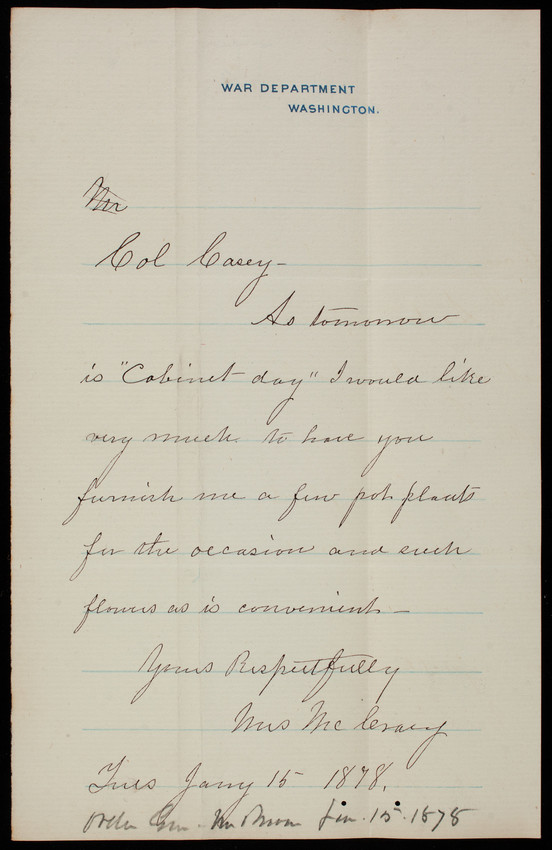 WAR DEPARTMENT
WASHINGTON.
Mr
Col Casey-
As tomorrow
is "Cabinet day" I would like
very much to have you
furnish me a few pot plants
for the occasion and such
flowers as is convenient-
Yours Respectfully
Mrs McCrary
Tues Jany 15 1878.
Mr Brown Jan. 15. 1878